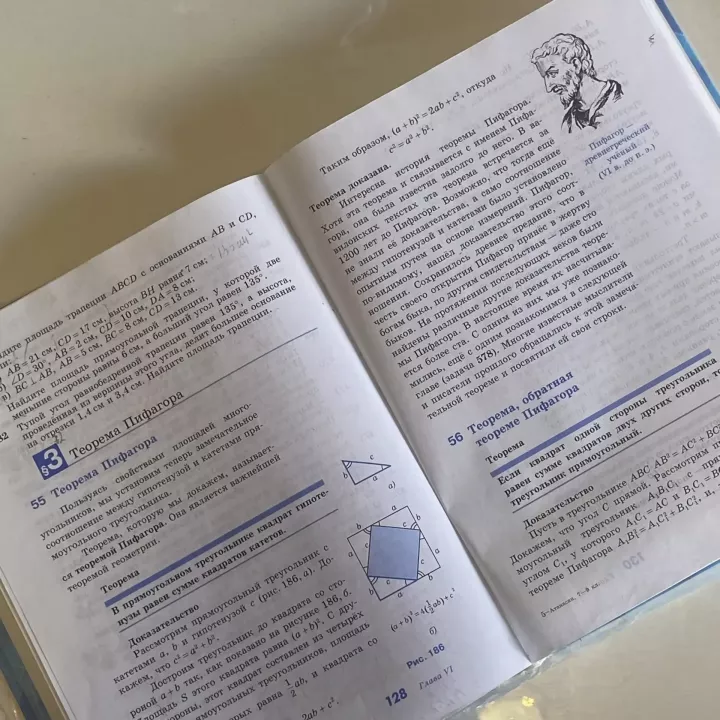 площадь трапеции ABCD с основаниями AB и CD,
AB = 21 см, CD = 17 см, высота BH равна 7 см;
= 30°, AB = 2 см, CD = 10 см, DA = 8 см;
в) BC ⊥ AB, AB = 5 см, BC = 8 см, CD = 13 см.
Найдите площадь прямоугольной трапеции, у которой две
меньшие стороны равны 6 см, а больший угол равен 135°.
Тупой угол равнобедренной трапеции равен 135°, а высота,
проведённая из вершины этого угла, делит большее основание
на отрезки 1,4 см и 3,4 см. Найдите площадь трапеции.
§3 Теорема Пифагора
55 Теорема Пифагора
Пользуясь свойствами площадей много-
угольников, мы установим теперь замечательное
соотношение между гипотенузой и катетами пря-
моугольного треугольника.
Теорема, которую мы докажем, называет-
ся теоремой Пифагора. Она является важнейшей
теоремой геометрии.
Теорема
В прямоугольном треугольнике квадрат гипоте-
нузы равен сумме квадратов катетов.
Доказательство
Рассмотрим прямоугольный треугольник с
катетами a, b и гипотенузой c (рис. 186, а). До-
кажем, что c² = a² + b².
Достроим треугольник до квадрата со сто-
роной a + b так, как показано на рисунке 186, б.
Площадь S этого квадрата равна (a + b)². С дру-
стороны, этот квадрат составлен из четырёх
прямоугольных треугольников, площадь
которых равна 1/2 ab, и квадрата со
2ab + c².
c
b
a
а)
a
b
c
(a + b)² = 4(1/2 ab) + c²
б)
Рис. 186
128
Глава VI
Таким образом, (a + b)² = 2ab + c², откуда
c² = a² + b².
Теорема доказана.
Интересна история теоремы Пифагора.
Хотя эта теорема и связывается с именем Пифа-
гора, она была известна задолго до него. В ва-
вилонских текстах эта теорема встречается за
1200 лет до Пифагора. Возможно, что тогда ещё
не знали её доказательства, а само соотношение
между гипотенузой и катетами было установлено
опытным путём на основе измерений. Пифагор,
по-видимому, нашёл доказательство этого соот-
ношения. Сохранилось древнее предание, что в
честь своего открытия Пифагор принёс в жертву
богам быка, по другим свидетельствам — даже сто
быков. На протяжении последующих веков были
найдены различные другие доказательства теоре-
мы Пифагора. В настоящее время их насчитыва-
ется более ста. С одним из них мы уже познако-
мились, ещё с одним познакомимся в следующей
главе (задача 578). Многие известные мыслители
и писатели прошлого обращались к этой замеча-
тельной теореме и посвятили ей свои строки.
Пифагор —
древнегреческий
учёный
(VI в. до н. э.)
56 Теорема, обратная
теореме Пифагора
Теорема
Если квадрат одной стороны треугольника
равен сумме квадратов двух других сторон, то
треугольник прямоугольный.
Доказательство
Пусть в треугольнике ABC AB² = AC² + BC²
Докажем, что угол C прямой. Рассмотрим
моугольный треугольник A₁B₁C₁ с
углом C₁, у которого A₁C₁ = AC и B₁C₁ =
теореме Пифагора A₁B₁² = A₁C₁² + B₁C₁², и,
5–Атанасян, 7–9 кл.